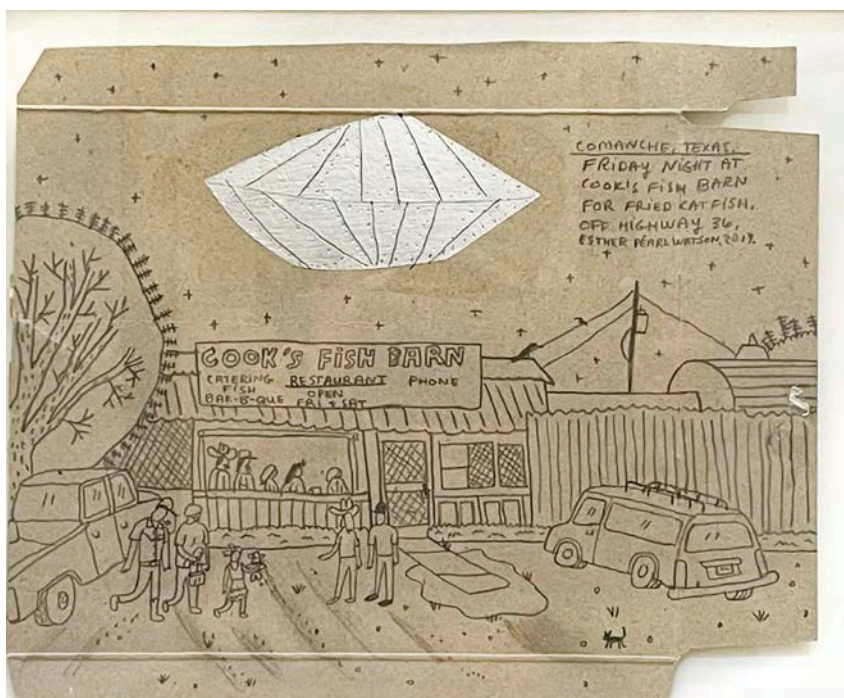 COMANCHE, TEXAS.
FRIDAY NIGHT AT
COOK'S FISH BARN
FOR FRIED CATFISH.
OFF HIGHWAY 36,
ESTHER PEARL WATSON, 2019.
COOK'S FISH BARN
CATERING RESTAURANT PHONE
FISH OPEN
BAR-B-QUE FRI & SAT